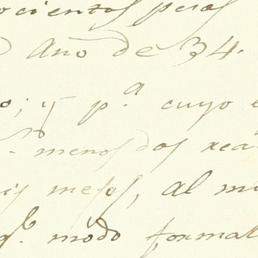 ocientos pesos
Año de 34.
o; y p.ª cuyo e
menos dos rea
is meses, al m
q.º modo formal